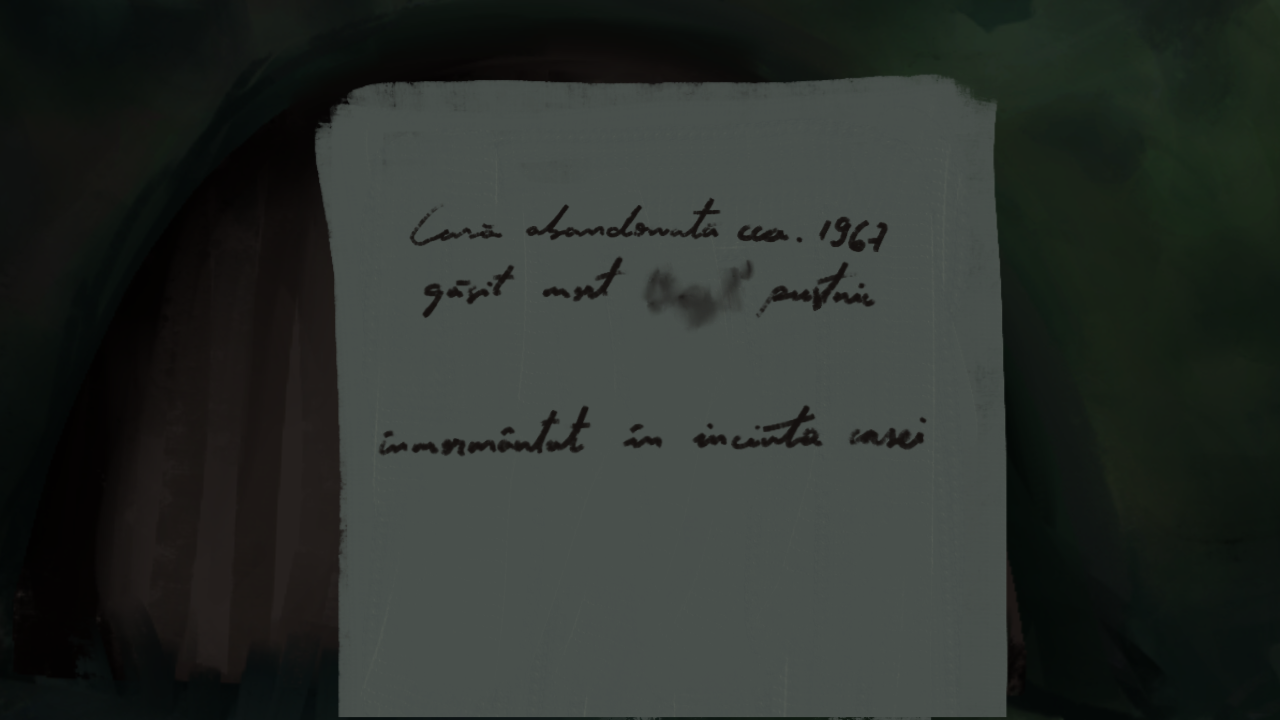 Casă abandonată cca. 1967
găsit mort pustnic
înmormântat în incinta casei